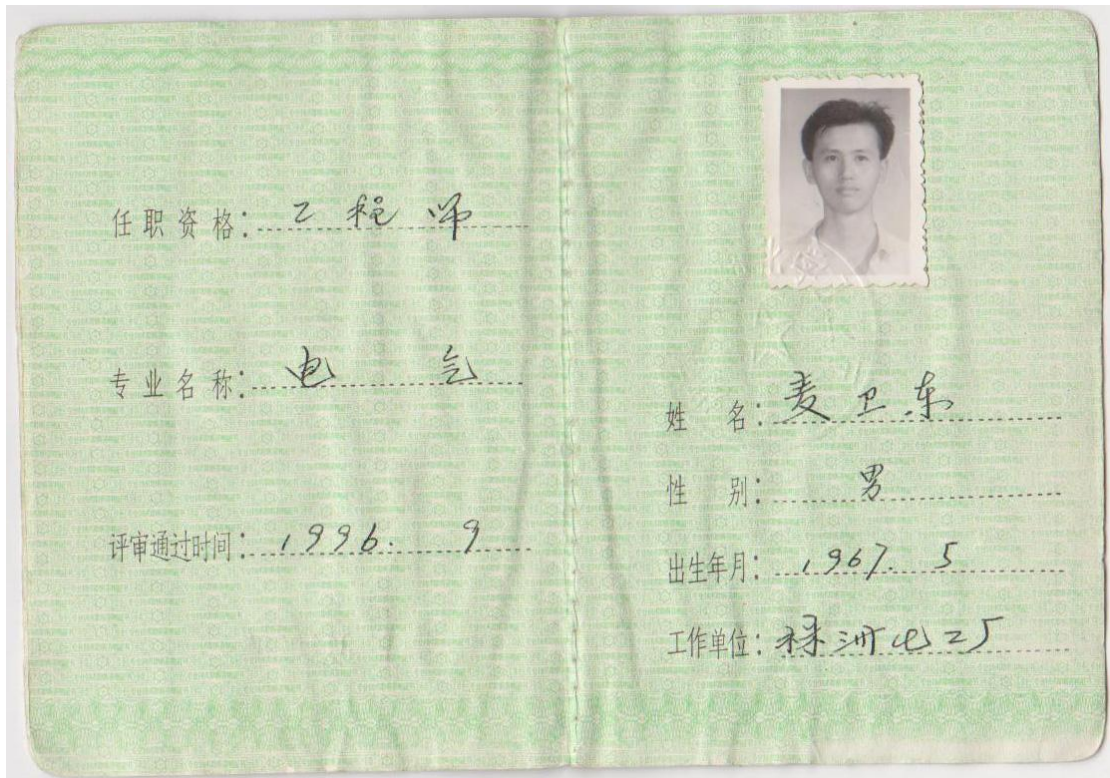 任职资格：工程师
专业名称：电气
评审通过时间：1996. 9
姓名：麦卫东
性别：男
出生年月：1967. 5
工作单位：